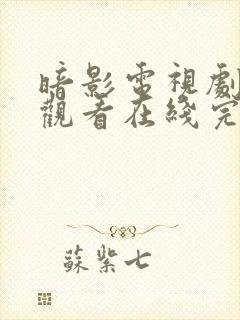 暗影電視劇
觀看在綫完
蘇紫七